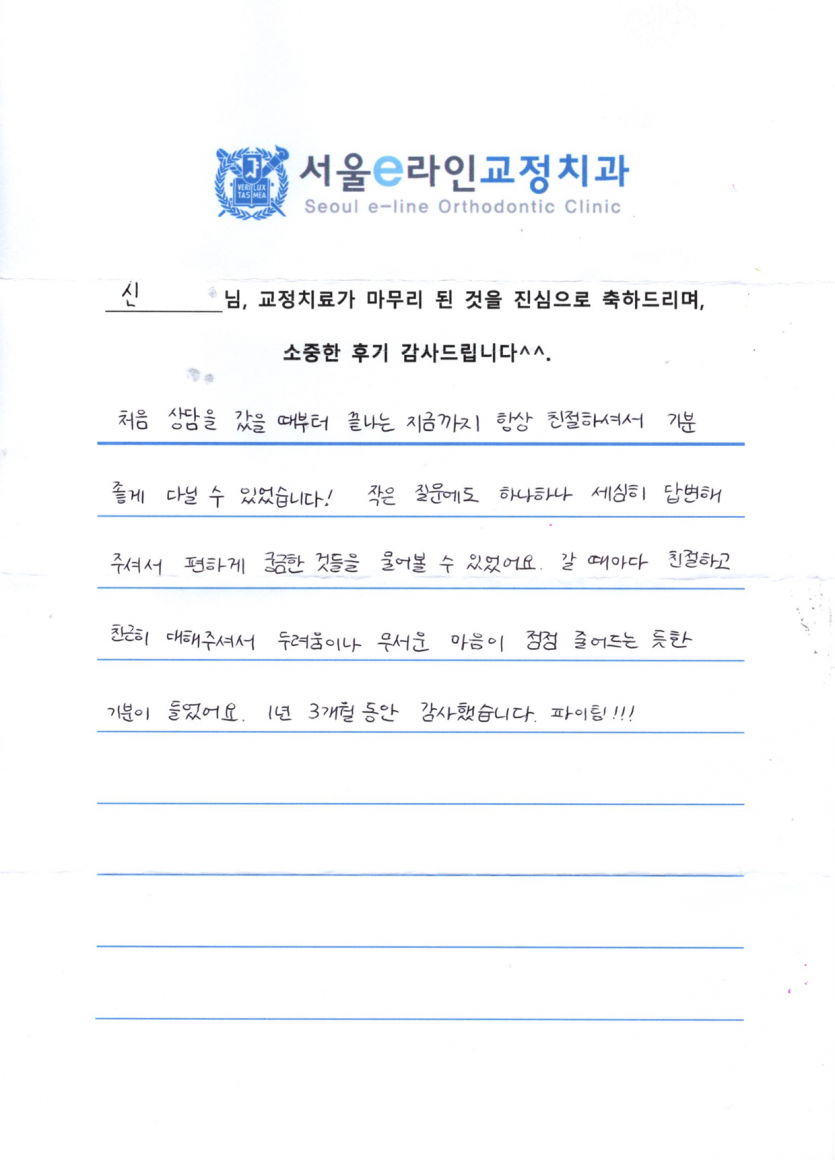 VERI LUX
TAS MEA
서울e라인교정치과
Seoul e-line Orthodontic Clinic
신 님, 교정치료가 마무리 된 것을 진심으로 축하드리며,
소중한 후기 감사드립니다^^.
처음 상담을 갔을 때부터 끝나는 지금까지 항상 친절하셔서 기분
좋게 다닐 수 있었습니다! 작은 질문에도 하나하나 세심히 답변해
주셔서 편하게 궁금한 것들을 물어볼 수 있었어요. 갈 때마다 친절하고
친근히 대해주셔서 두려움이나 무서운 마음이 점점 줄어드는 듯한
기분이 들었어요. 1년 3개월 동안 감사했습니다. 파이팅!!!